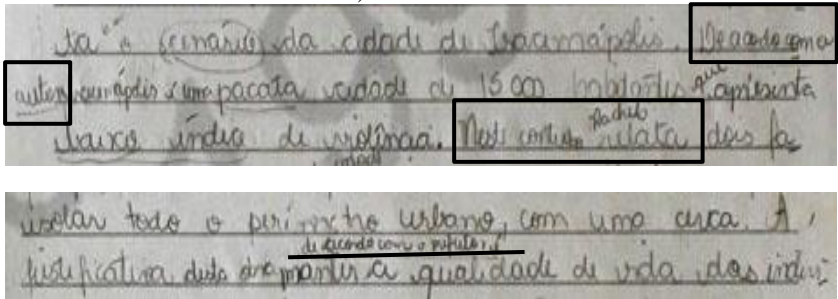 ta" o cenário da cidade de Iracemápolis. De acordo com a
autora, é uma pacata cidade de 15 000 habitantes que apresenta
baixo índice de violência. Neste contexto Rachel relata dois fa
isolar todo o perímetro urbano, com uma cerca. A
de acordo com o prefeito é
justificativa desta manter a qualidade de vida dos indivi